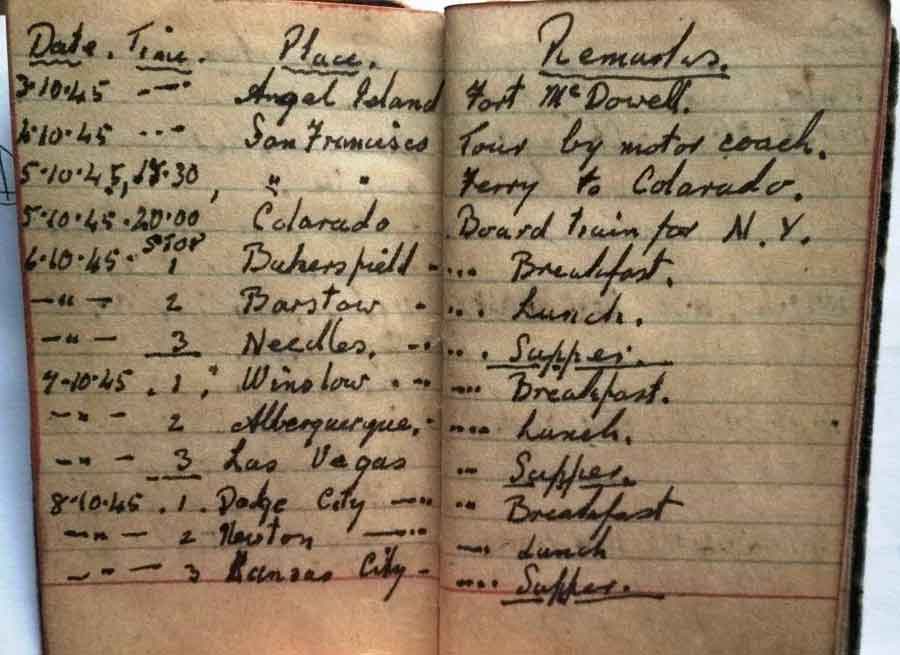 Date. Time. Place. Remarks.
3·10·45 -··- Angel Island Fort McDowell.
4·10·45 -··- San Francisco Tour by motor coach.
5·10·45, 18·30, " " Ferry to Colarado.
5·10·45·20·00 Colarado Board train for N.Y.
STOP
6·10·45· 1 Bakersfield -··· Breakfast.
—"— 2 Barstow -··· Lunch.
—"— 3 Needles. -··· Supper.
7·10·45 . 1 , Winslow ·-··· Breakfast.
—"— 2 Alberquerque,·-··· Lunch.
—"— 3 Las Vegas -·· Supper.
8·10·45 . 1 . Dodge City —·· Breakfast
—"— 2 Newton —·· Lunch
—"— 3 Kansas City -··· Supper.